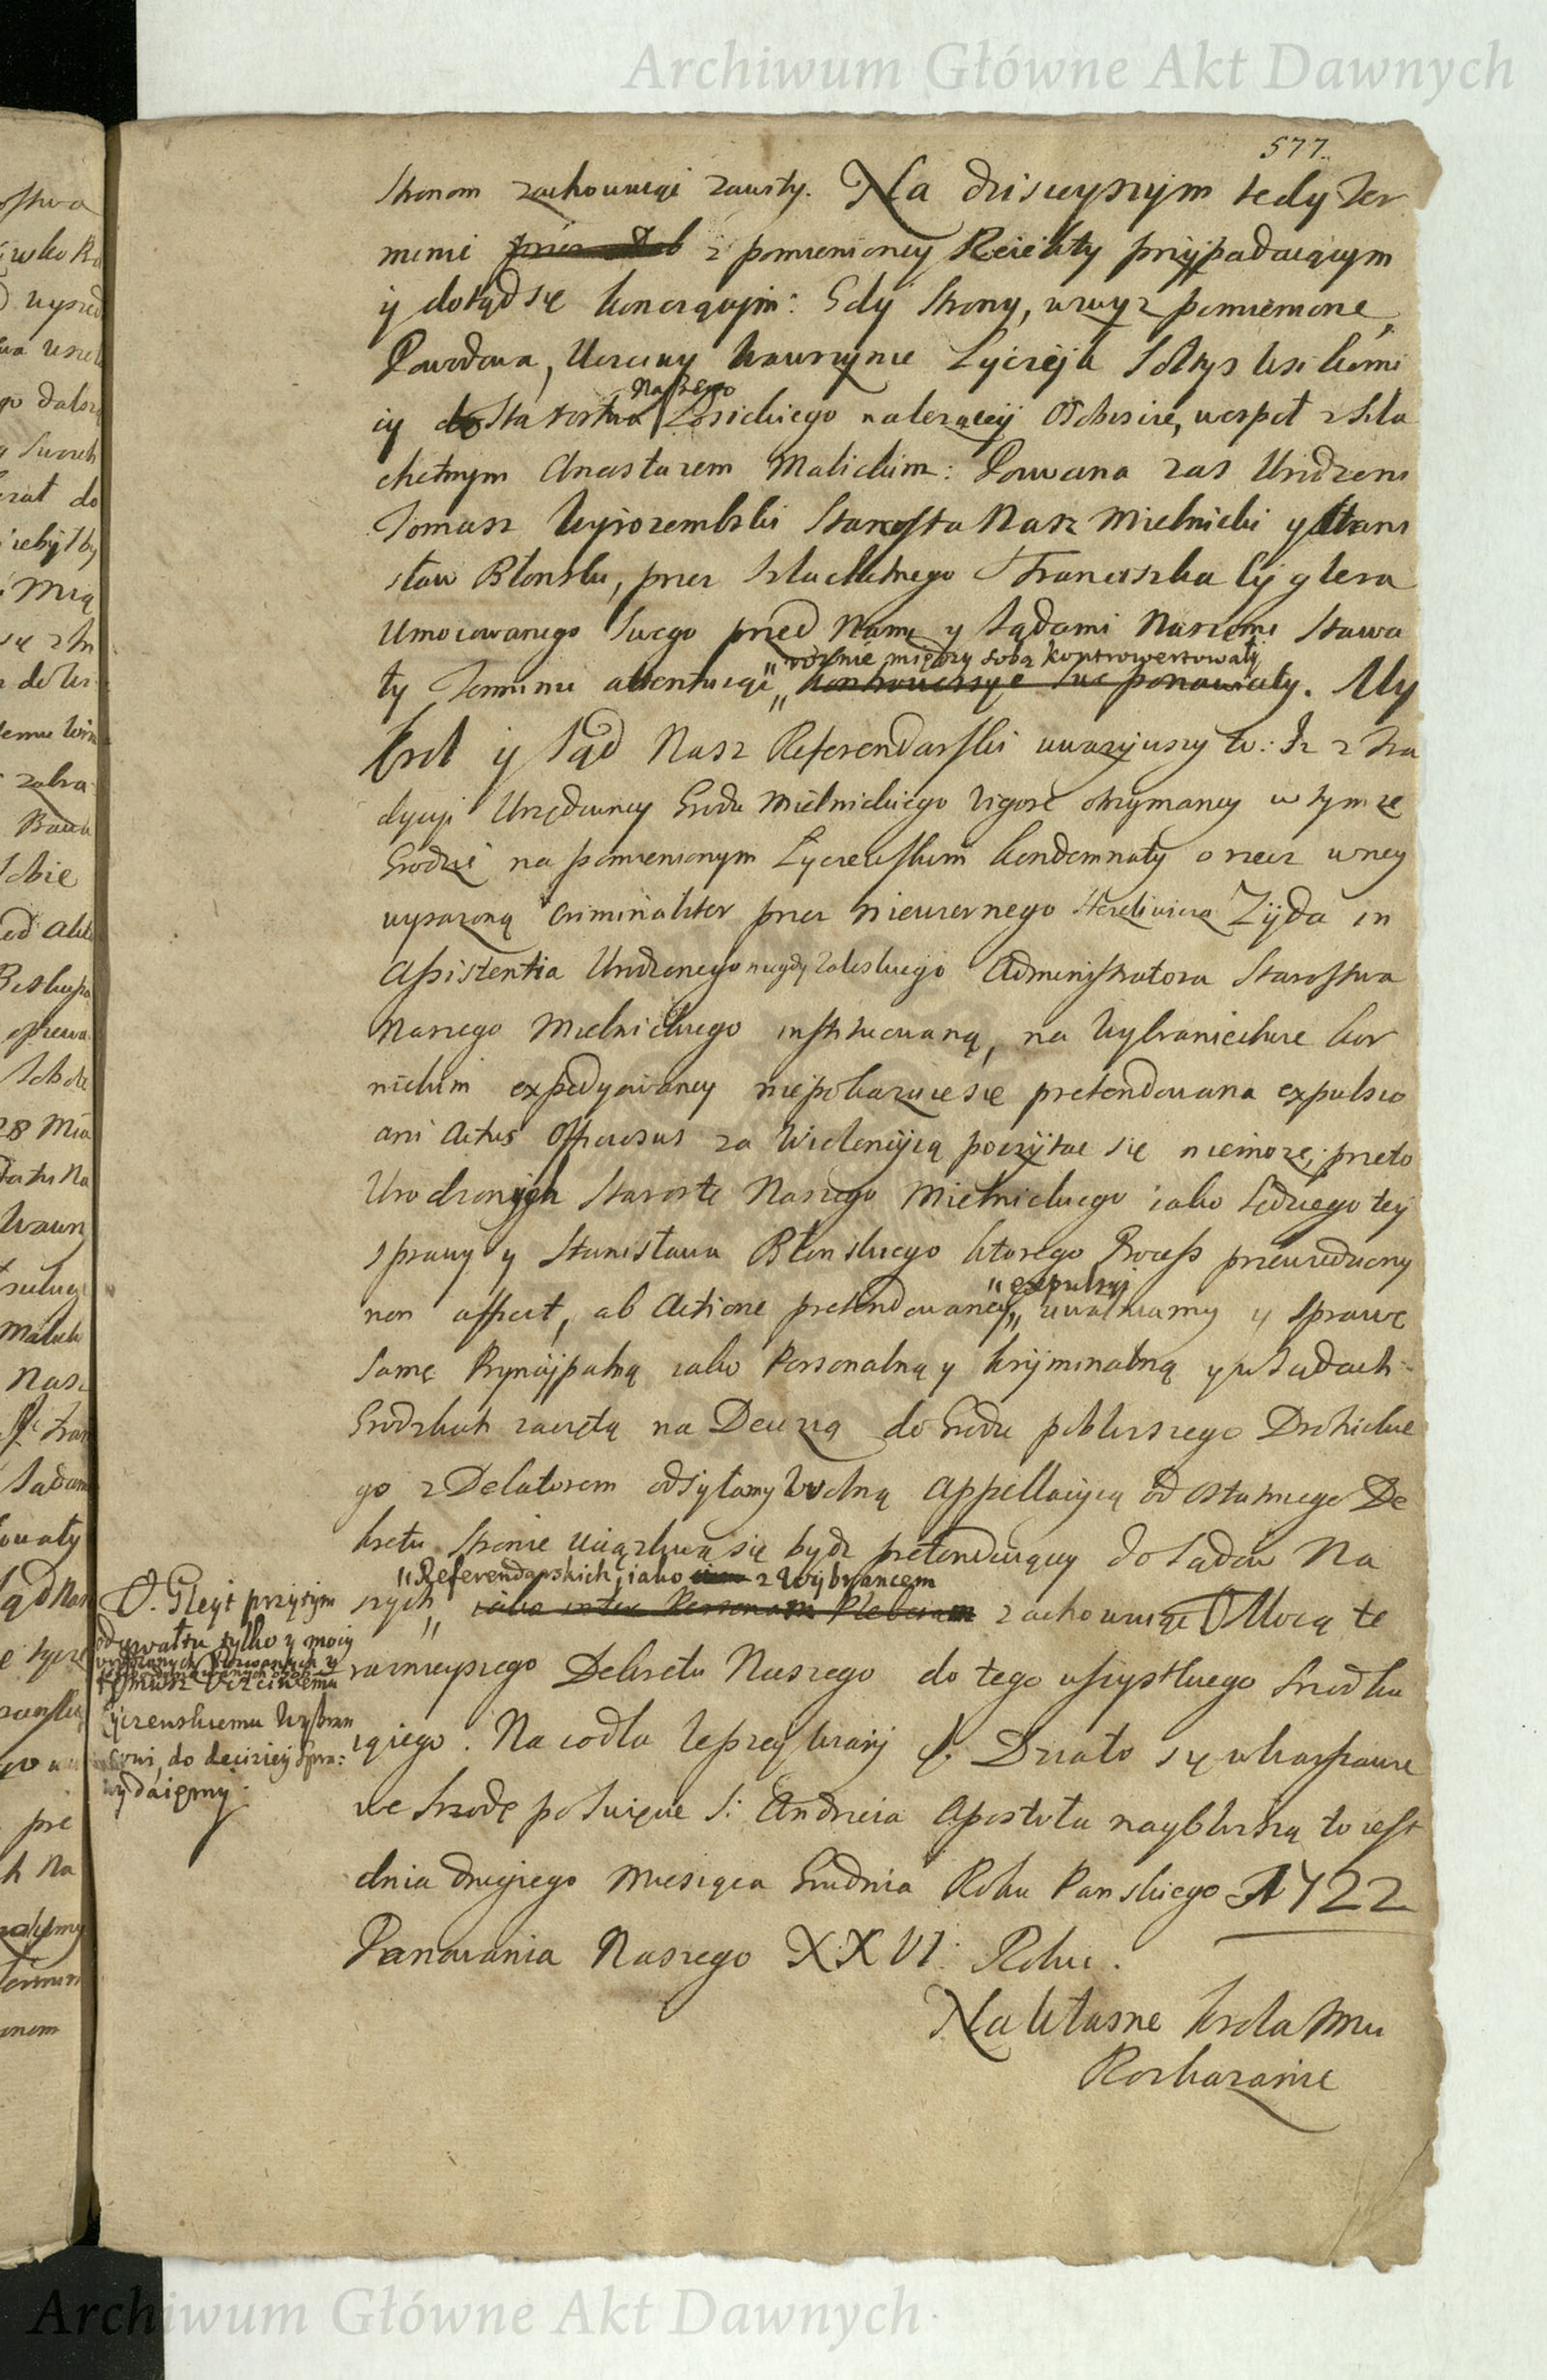 Archiwum Główne Akt Dawnych
577.
Stronom zachowując zawity. Na dzisieyszym tedy Ter
minie z pomienioney Rejekty przypadaiącym
y dotąd się kończącym: Gdy Strony, wzwyż pomienione,
Powodowa, Uczciwy Wawrzyniec Łyczeyk Sołtys wsi Korni
cy do Starostwa Naszego Łosickiego należącey Osobiscie, wespoł z Szla
chetnym Anastazem Malickim: Pozwana zas Urodzeni
Tomasz Wyrozembski Starosta Nasz Mielnicki y Stani
sław Błonski, przez Szlachetnego Franciszka Cyglera
Umocowanego Swego przed Nami y Sądami Naszemi Stawa
" rożnie między sobą kontrowertowały
ły Terminu attentuiąc " kontrowersye swe ponawiały. My
Krol y Sąd Nasz Referendarski uważywszy to: Iż z Tra
dycyi Urzędowney Grodu Mielnickiego vigore otrzymaney w tymże
Grodzie na pomienionym Łyczewskim kondemnaty o rzecz w ney
wyrażoną criminaliter przez niewiernego Żyda in
Assistentia Urodzonego niegdy Zaleskiego Administratora Starostwa
Naszego Mielnickiego instituowaną, na Wybraniectwie Kor
nickim expedyowaney niepokazuie się pretendowana expulsio
ani Actus Officiosus za Wiolencyią poczytac się niemoże, przeto
Urodzonych Starostę Naszego Mielnickiego iako Sędziego tey
sprawy y Stanisława Błonskiego ktorego Process przewiedziony
" expulsyi
non afficit, ab Actione pretendowaney " uwalniamy y sprawę
samę Pryncypalną iako Personalną y kryminalną y w Sądach
Grodzkich zaczętą na Decyzą do Grodu pobliższego Drohickie
go z Delatorem odsyłamy Wolną Appellacyią od ostatniego De
kretu Stronie uciążliwą się bydz pretenduiącey do Sądow Na
" Referendarskich, iako z Wybrancem
szych " iako inter Personam Plebeiam zachowuiąc Mocą te
raznieyszego Dekretu Naszego do tego wszystkiego srzodku
iącego. Na co dla lepszey wiary &. Działo się w Warszawie
we Srzodę po Swięcie S. Andrzeia Apostoła naybliższą to iest
dnia drugiego Miesiąca Grudnia Roku Panskiego 1722
Panowania Naszego XXVI Roku.
Na Własne Krola Jmci
Roskazanie
Gleyt przytym
od gwałtu tylko y mocy
Urodzonych Pozwanych y
temusz Uczciwemu
Łyczewskiemu Wybran
cowi, do deciziey spra:
wy daiemy.
Archiwum Główne Akt Dawnych